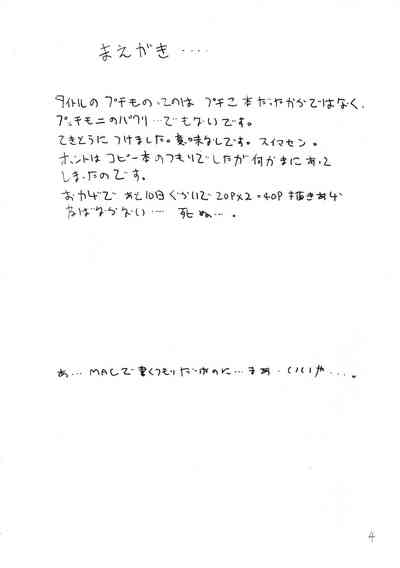 まえがき‥‥
タイトルの プチもの‥ってのは プチこ本だったからではなく、
プッチモニのパクリ…でもないです。
てきとうに つけました。意味なしです。スイマセン。
ホントは コピー本のつもりでしたが何かまにあって
しまったのです。
おかげで あと10日ぐらいで 20P×2=40P 描きあげ
なばならない… 死ぬ…。
あ… MACで書くつもりだったのに…まあ・いいや‥‥。
4